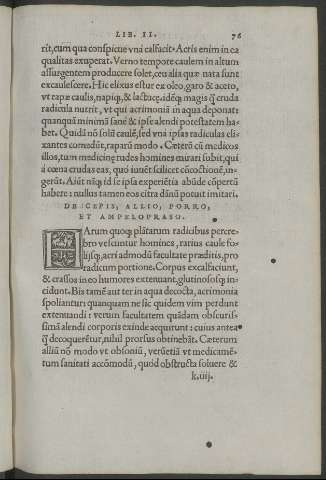 LIB. II. 76
rit, cum qua conspicue vnà calfacit. Acris enim in ea
qualitas exuperat. Verno tempore caulem in altum
assurgentem producere solet, ceu alia quæ nata sunt
excaulescere. Hic elixus estur ex oleo, garo & aceto,
vt rapæ caulis, napiq́;, & lactucæ. idéq́; magis q̃ cruda
radicula nutrit, vt qui acrimoniã in aqua deponat:
quanquã minimũ sanè & ipse alendi potestatem ha-
bet. Quidã nõ solũ caulẽ, sed vna ipsas radiculas eli-
xantes comedũt, raparũ modo. Cęterũ cũ medicos
illos, tum medicinę rudes homines mirari subit, qui
à cœna crudas eas, quò iuuẽt scilicet cõcoctionẽ, in-
gerũt. Aiũt nãq́; id se ipsa experiẽtia abũde cõpertũ
habere: nullus tamen eos citra dãnũ potuit imitari.
DE CEPIS, ALLIO, PORRO,
ET AMPELOPRASO.
HArum quoq́; plãtarum radicibus percre-
bro vescuntur homines, rarius caule fo-
lijsq́;, acri admodũ facultate præditis, pro
radicum portione. Corpus excalfaciunt,
& crassos in eo humores extenuant, glutinososq́; in-
cidunt. Bis tamẽ aut ter in aqua decocta, acrimonia
spoliantur: quanquam ne sic quidem vim perdunt
extenuandi: verùm facultatem quãdam obscuris-
simã alendi corporis exinde acquirunt: cuius antea
q̃ decoquerẽtur, nihil prorsus obtinebãt. Cæterum
alliũ nõ modò vt obsoniũ, verũetiã vt medicamẽ-
tum sanitati accõmodũ, quòd obstructa soluere &
k.iiij.